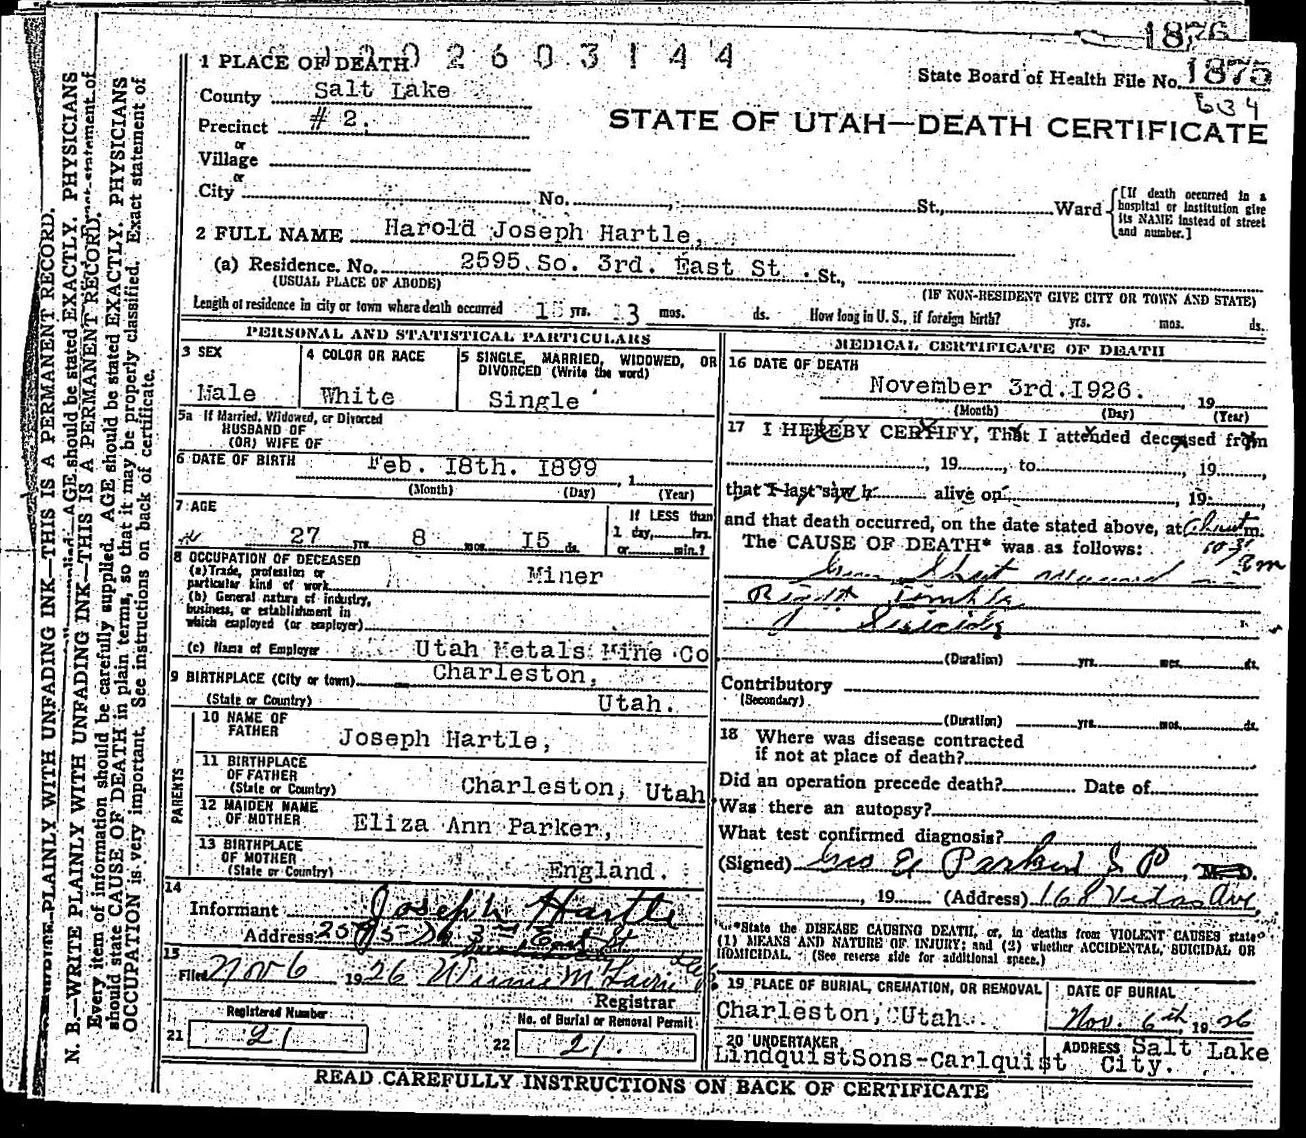 1876
1202603144
1 PLACE OF DEATH
State Board of Health File No. 1875
634
County Salt Lake
STATE OF UTAH—DEATH CERTIFICATE
Precinct # 2.
or
Village
or
City No. St., Ward
[If death occurred in a hospital or institution give its NAME instead of street and number.]
2 FULL NAME Harold Joseph Hartle,
(a) Residence. No. 2595 So. 3rd. East St. St.,
(USUAL PLACE OF ABODE)
(IF NON-RESIDENT GIVE CITY OR TOWN AND STATE)
Length of residence in city or town where death occurred 15 yrs. 3 mos. ds. How long in U. S., if foreign birth? yrs. mos. ds.
PERSONAL AND STATISTICAL PARTICULARS
3 SEX
Male
4 COLOR OR RACE
White
5 SINGLE, MARRIED, WIDOWED, OR
DIVORCED (Write the word)
Single
5a If Married, Widowed, or Divorced
HUSBAND OF
(OR) WIFE OF
6 DATE OF BIRTH Feb. 18th. 1899 , 1
(Month) (Day) (Year)
7 AGE
27 yrs. 8 mos. 15 ds.
If LESS than
1 day, hrs.
or min.?
8 OCCUPATION OF DECEASED
(a) Trade, profession or
particular kind of work Miner
(b) General nature of industry,
business, or establishment in
which employed (or employer)
(c) Name of Employer Utah Metals Mine Co
9 BIRTHPLACE (City or town) Charleston,
(State or Country) Utah.
PARENTS
10 NAME OF
FATHER Joseph Hartle,
11 BIRTHPLACE
OF FATHER
(State or Country) Charleston, Utah
12 MAIDEN NAME
OF MOTHER Eliza Ann Parker,
13 BIRTHPLACE
OF MOTHER
(State or Country) England.
14
Informant Joseph Hartle
Address 2595 So 3
East St
15
Filed Nov 6 1926
Registrar
Registered Number
21 21
No. of Burial or Removal Permit
22 21.
MEDICAL CERTIFICATE OF DEATH
16 DATE OF DEATH
November 3rd. 1926. , 19
(Month) (Day) (Year)
17 I HEREBY CERTIFY, That I attended deceased from
, 19 , to , 19 ,
that I last saw h alive on , 19
and that death occurred, on the date stated above, at About m.
10-30 Pm
The CAUSE OF DEATH* was as follows:
Gun Shot wound in
Right Temple
Suicide
(Duration) yrs. mos. ds.
Contributory
(Secondary)
(Duration) yrs. mos. ds.
18 Where was disease contracted
if not at place of death?
Did an operation precede death? Date of
Was there an autopsy?
What test confirmed diagnosis?
(Signed) Geo E Parker J P, M. D.
, 19 (Address) 168 Vidas Ave,
*State the DISEASE CAUSING DEATH, or, in deaths from VIOLENT CAUSES state
(1) MEANS AND NATURE OF INJURY; and (2) whether ACCIDENTAL, SUICIDAL OR
HOMICIDAL. (See reverse side for additional space.)
19 PLACE OF BURIAL, CREMATION, OR REMOVAL
Charleston, Utah.
DATE OF BURIAL
Nov. 6th, 1926
20 UNDERTAKER
LindquistSons-Carlquist
ADDRESS Salt Lake
City.
READ CAREFULLY INSTRUCTIONS ON BACK OF CERTIFICATE
WRITE PLAINLY WITH UNFADING INK—THIS IS A PERMANENT RECORD.
AGE should be stated EXACTLY. PHYSICIANS
N. B.—WRITE PLAINLY WITH UNFADING INK—THIS IS A PERMANENT RECORD.
Every item of information should be carefully supplied. AGE should be stated EXACTLY. PHYSICIANS
should state CAUSE OF DEATH in plain terms, so that it may be properly classified. Exact statement of
OCCUPATION is very important. See instructions on back of certificate.